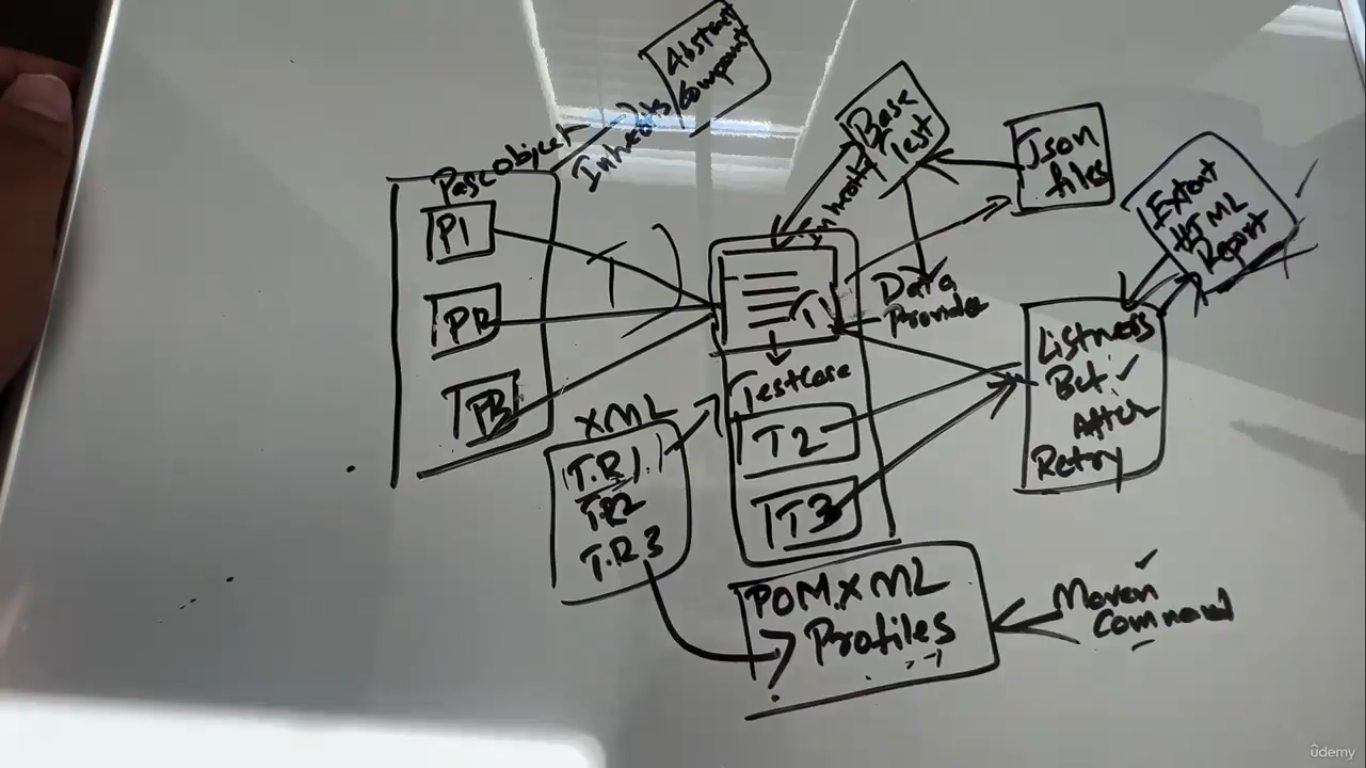 Abstract
Component
Inherits
Pageobject
P1
PB
PB
Base
Test
Inherits
Json
files
Extent
HTML
Report
Data
Provider
T1
TestCase
T2
T3
Listners
Bef
After
Retry
XML
T.R1.
TR2
T.R3
POM.XML
Profiles
Maven
Command
ûdemy